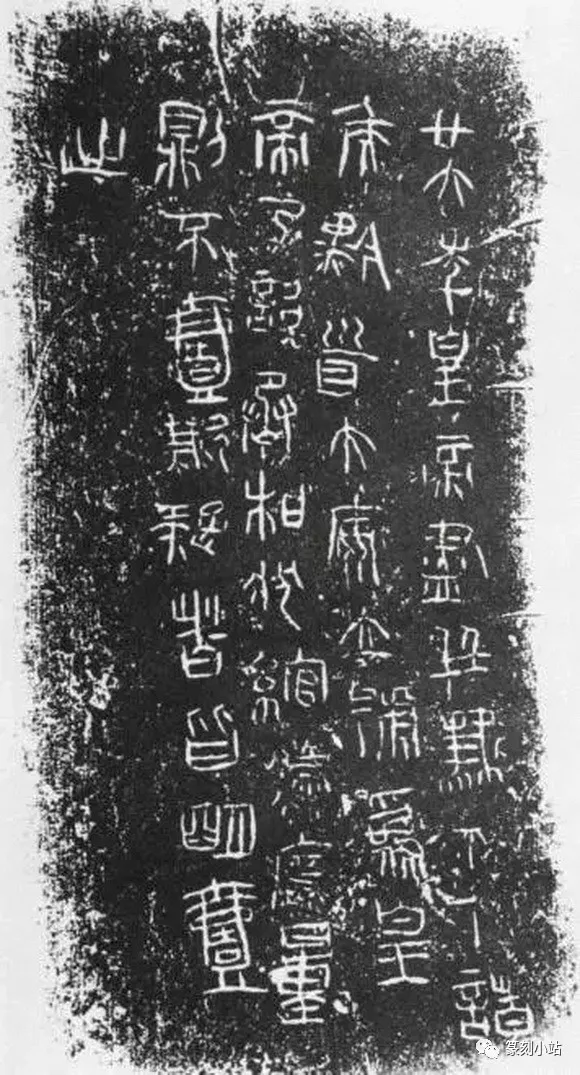 廿六年皇帝盡并兼天下諸
侯黔首大安立號為皇
帝乃詔丞相狀綰灋度量
則不壹歉疑者皆明壹
之
篆刻小站